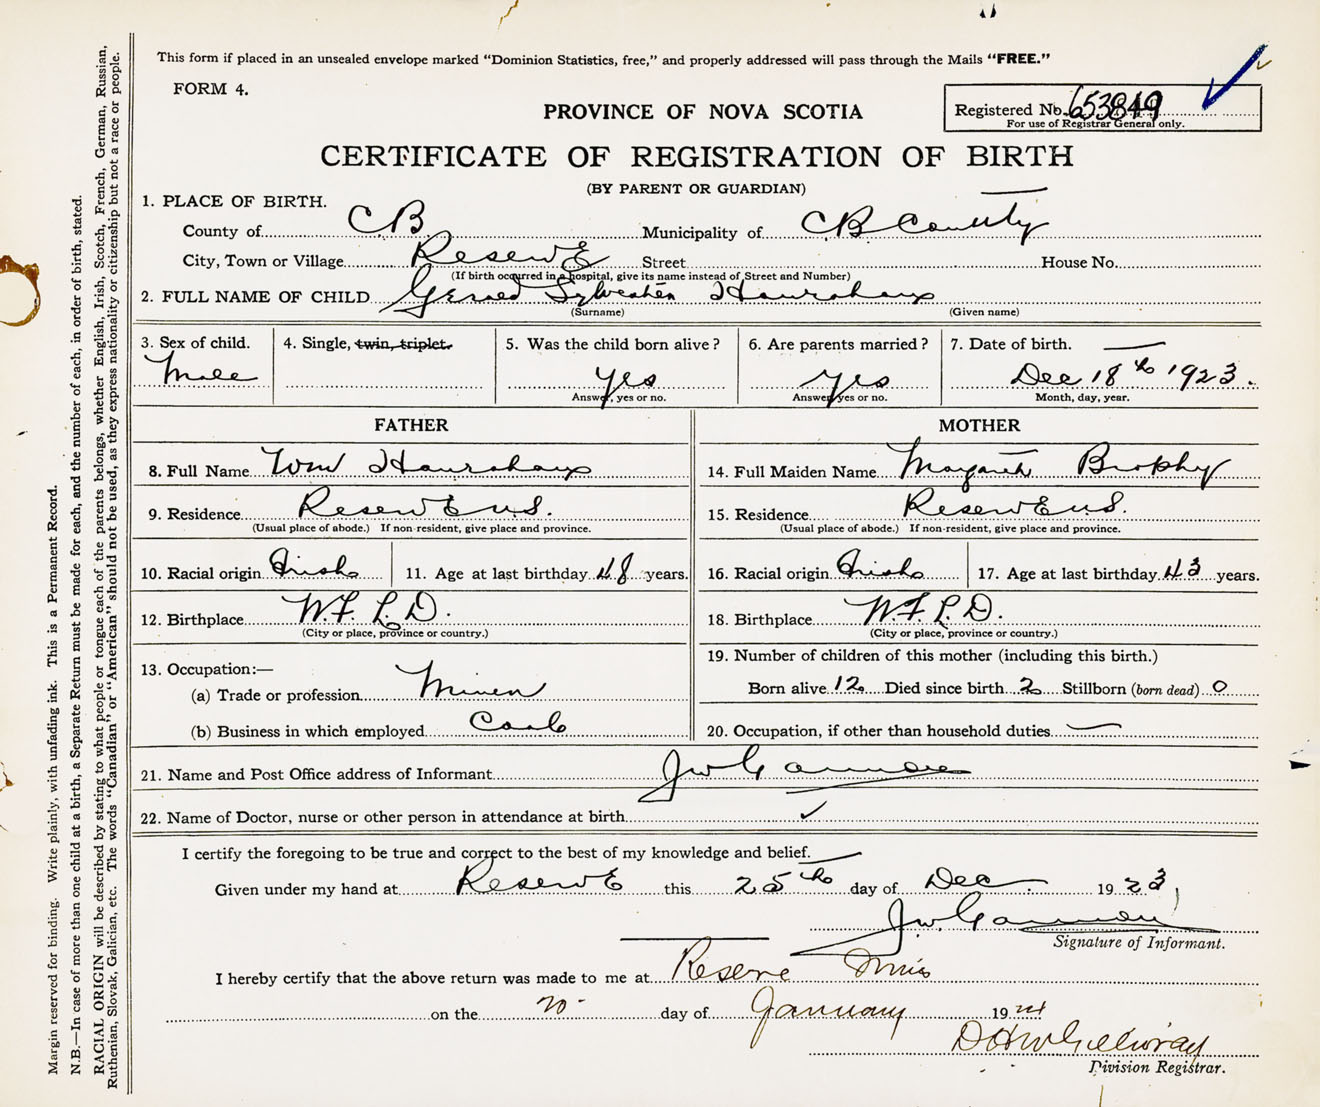 This form if placed in an unsealed envelope marked "Dominion Statistics, free," and properly addressed will pass through the Mails "FREE."
FORM 4.
Registered No. 653849
For use of Registrar General only.
PROVINCE OF NOVA SCOTIA
CERTIFICATE OF REGISTRATION OF BIRTH
(BY PARENT OR GUARDIAN)
1. PLACE OF BIRTH.
County of C B Municipality of C B County
City, Town or Village Reserve Street House No.
(If birth occurred in a hospital, give its name instead of Street and Number)
2. FULL NAME OF CHILD Sylvester
(Surname) (Given name)
3. Sex of child. 4. Single, twin, triplet. 5. Was the child born alive? 6. Are parents married? 7. Date of birth.
Male yes yes Dec 18th 1923.
Answer, yes or no. Answer, yes or no. Month, day, year.
FATHER MOTHER
8. Full Name Wm 14. Full Maiden Name Margareth Brophy
9. Residence Reserve 15. Residence Reserve
(Usual place of abode.) If non-resident, give place and province. (Usual place of abode.) If non-resident, give place and province.
10. Racial origin Irish 11. Age at last birthday 48 years. 16. Racial origin Irish 17. Age at last birthday 43 years.
12. Birthplace N.F.L.D. 18. Birthplace N.F.L.D.
(City or place, province or country.) (City or place, province or country.)
13. Occupation:— 19. Number of children of this mother (including this birth.)
(a) Trade or profession Miner Born alive 12 Died since birth 2 Stillborn (born dead) 0
(b) Business in which employed Coal 20. Occupation, if other than household duties —
21. Name and Post Office address of Informant J W
22. Name of Doctor, nurse or other person in attendance at birth ✓
I certify the foregoing to be true and correct to the best of my knowledge and belief.
Given under my hand at Reserve this 25th day of Dec 1923
J. W.
Signature of Informant.
I hereby certify that the above return was made to me at Reserve Mines
on the 20 day of January 1924
Division Registrar.
Margin reserved for binding. Write plainly, with unfading ink. This is a Permanent Record.
N.B.—In case of more than one child at a birth, a Separate Return must be made for each, and the number of each, in order of birth, stated.
RACIAL ORIGIN will be described by stating to what people or tongue each of the parents belongs, whether English, Irish, Scotch, French, German, Russian,
Ruthenian, Slovak, Galician, etc. The words "Canadian" or "American" should not be used, as they express nationality or citizenship but not a race or people.